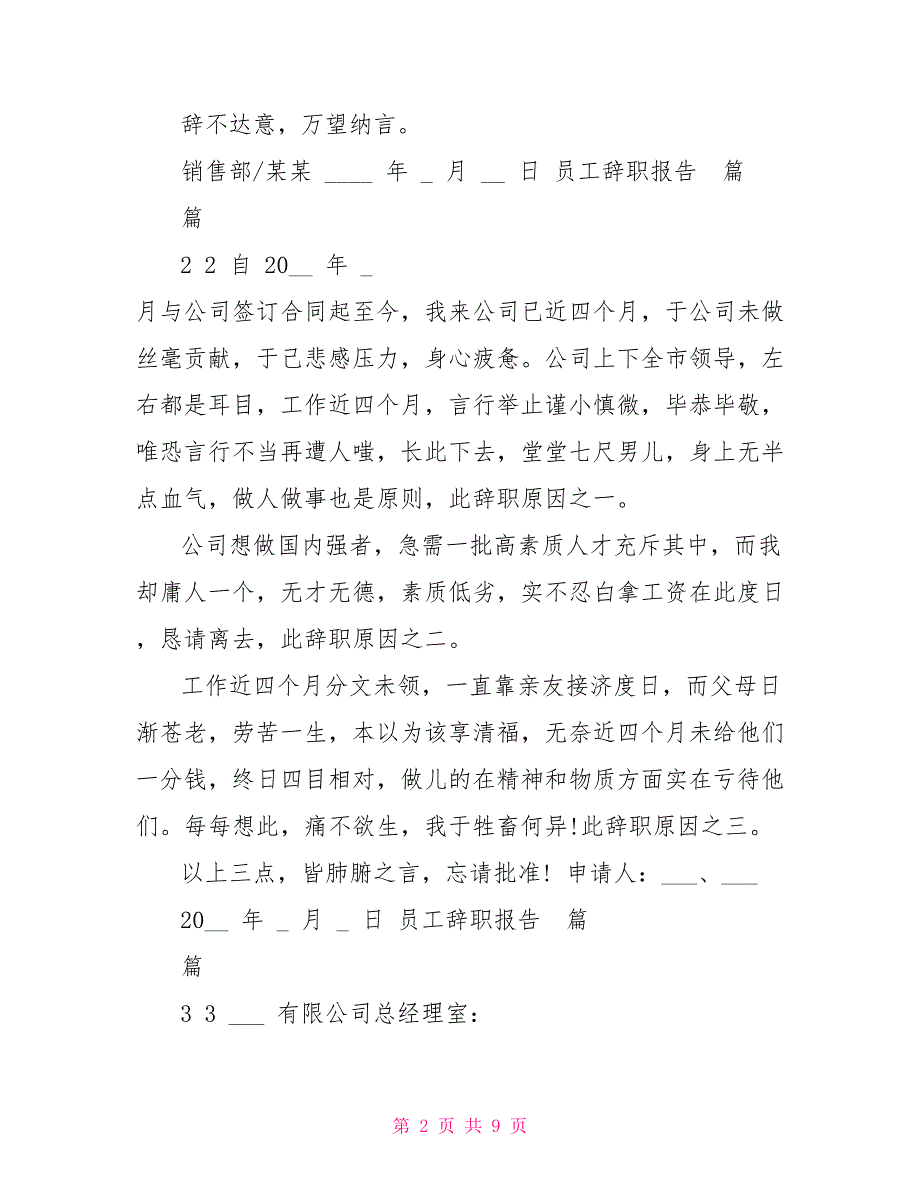 辞不达意，万望纳言。
销售部/某某 ____ 年 _ 月 __ 日 员工辞职报告 篇
篇
2 2 自 20__ 年 _
月与公司签订合同起至今，我来公司已近四个月，于公司未做
丝毫贡献，于己悲感压力，身心疲惫。公司上下全市领导，左
右都是耳目，工作近四个月，言行举止谨小慎微，毕恭毕敬，
唯恐言行不当再遭人嗤，长此下去，堂堂七尺男儿，身上无半
点血气，做人做事也是原则，此辞职原因之一。
公司想做国内强者，急需一批高素质人才充斥其中，而我
却庸人一个，无才无德，素质低劣，实不忍白拿工资在此度日
，恳请离去，此辞职原因之二。
工作近四个月分文未领，一直靠亲友接济度日，而父母日
渐苍老，劳苦一生，本以为该享清福，无奈近四个月未给他们
一分钱，终日四目相对，做儿的在精神和物质方面实在亏待他
们。每每想此，痛不欲生，我于牲畜何异!此辞职原因之三。
以上三点，皆肺腑之言，忘请批准! 申请人：___、___
20__ 年 _ 月 _ 日 员工辞职报告 篇
篇
3 3 ___ 有限公司总经理室：
第 2 页 共 9 页